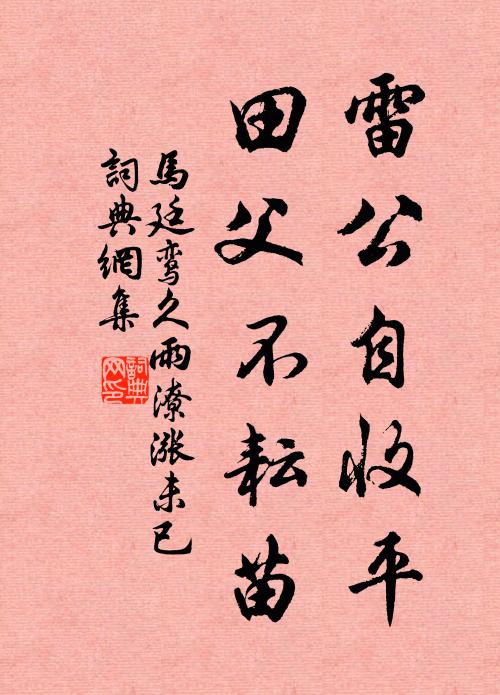 雷公自收平
田父不耘苗
馬廷鸞久雨潦漲未已
詞典網集
詞典網印